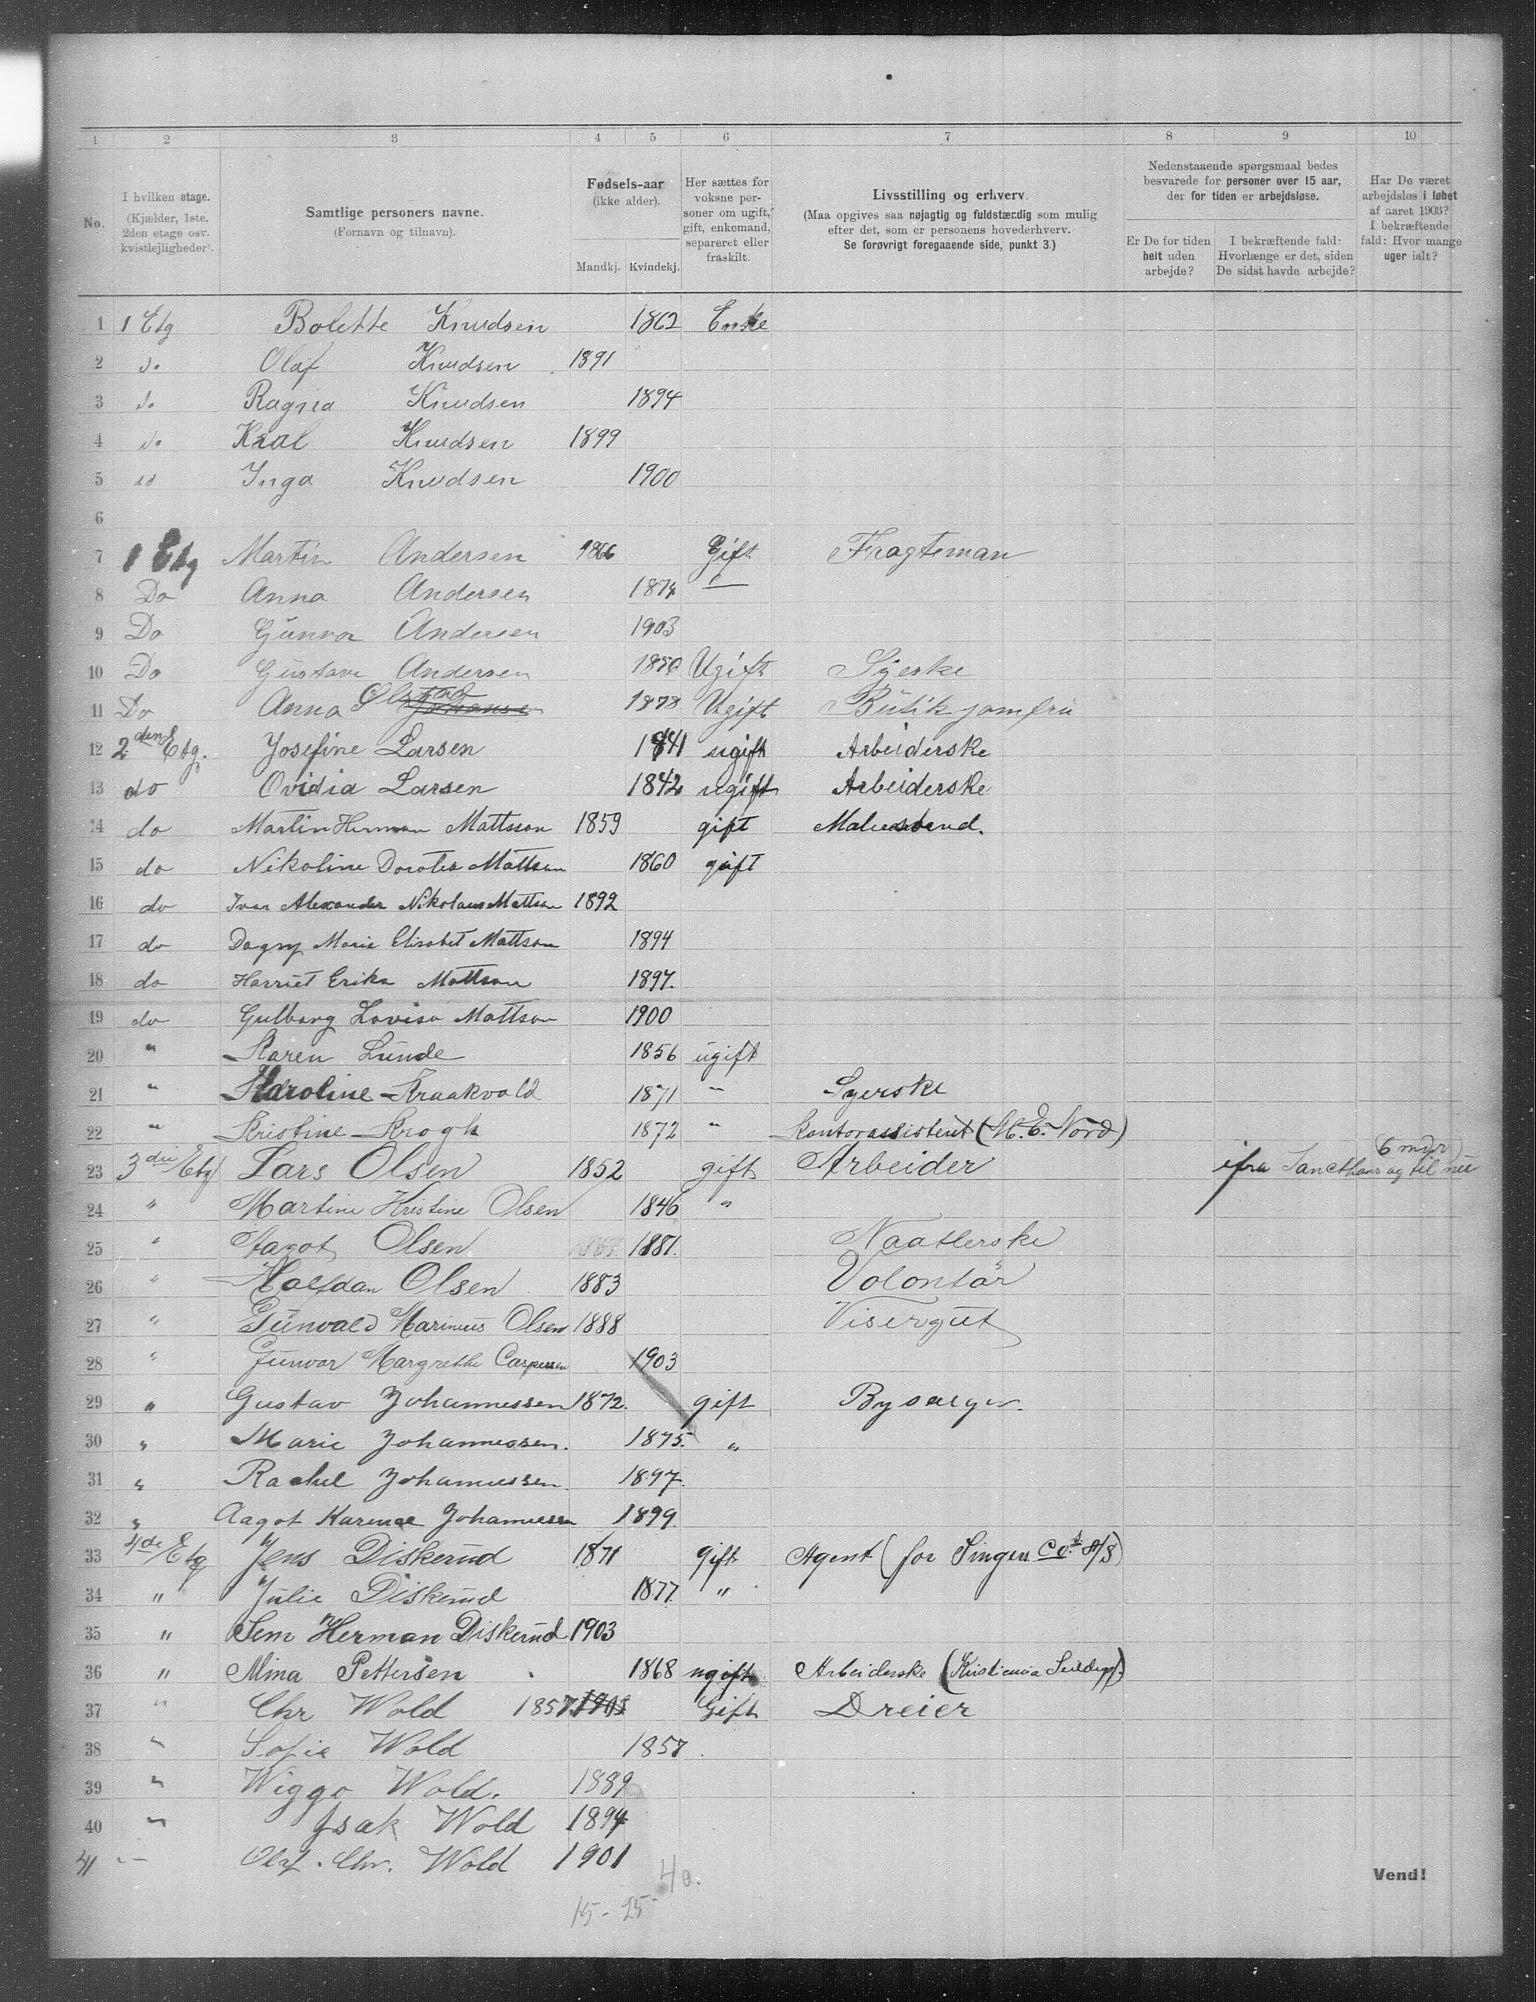 1 2 3 4 5 6 7 8 9 10
No.
I hvilken etage. (Kjælder, 1ste, 2den etage osv. kvistlejligheder).
Samtlige personers navne. (Fornavn og tilnavn).
Fødsels-aar (ikke alder). Mandkj. Kvindekj.
Her sættes for voksne personer om ugift, gift, enkemand, separeret eller fraskilt.
Livsstilling og erhverv. (Maa opgives saa nøjagtig og fuldstændig som mulig efter det, som er personens hovederhverv. Se forøvrigt foregaaende side, punkt 3.)
Nedenstaaende spørgsmaal bedes besvarede for personer over 15 aar, der for tiden er arbejdsløse.
Er De for tiden helt uden arbejde?
I bekræftende fald: Hvorlænge er det, siden De sidst havde arbejde?
Har De været arbejdsløs i løbet af aaret 1903? I bekræftende fald: Hvor mange uger ialt?
1 1 Etg Bolette Knudsen 1862 Enke
2 do Olaf Knudsen 1891
3 do Ragna Knudsen 1894
4 do Kral Knudsen 1899
5 do Inga Knudsen 1900
6
7 1 Etg Martin Andersen 1866 Gift Fragteman
8 Do Anna Andersen 1874 —
9 Do Gunvor Andersen 1903
10 Do Gustava Andersen 1850 Ugift Syeske
11 Do Anna 1878 Ugift Butik jomfru
12 2den Etg. Josefine Larsen 1841 ugift Arbeiderske
13 do Ovidia Larsen 1842 ugift Arbeiderske
14 do Martin Herman Mattsson 1859 gift
15 do Nikoline Dorotea Mattson 1860 gift
16 do Ivar Alexander Nikolaus Mattson 1892
17 do Dagny Marie Elisabet Mattson 1894
18 do Harriet Erika Mattson 1897.
19 do Gulborg Lovisa Mattson 1900
20 " Karen Lunde 1856 ugift
21 " Karoline Kraakvold 1871 " Syerske
22 " Kristine Krogh 1872 " Kontorassistent (M. E. Nord)
23 3die Etg Lars Olsen 1852 gift Arbeider ifra Sancthans og til nu (6 mdr)
24 " Martine Kristine Olsen 1846 "
25 " Aagot Olsen 1881. Naatlerske
26 " Halfdan Olsen 1883 Volontär
27 " Gunvald Marinius Olsen 1888 Visergut
28 " Gunvor Margrethe Caspersen 1903
29 " Gustav Johannessen 1872. gift Bysælger.
30 " Marie Johannessen. 1875. "
31 " Rachel Johannessen. 1897.
32 " Aagot Karense Johannessen 1899.
33 4de Etg Jens Diskerud 1871 gift Agent (for Singer Co.s A/S)
34 " Julie Diskerud 1877. "
35 " Sem Herman Diskerud 1903
36 " Mina Pettersen 1868 ugift Arbeiderske (Kristiania
37 " Chr Wold 1857 1903 Gift Dreier
38 " Sofie Wold 1857.
39 " Wiggo Wold. 1889
40 " Isak Wold 1894
41 — Olaf. Chr. Wold 1901
40.
15 - 25
Vend!